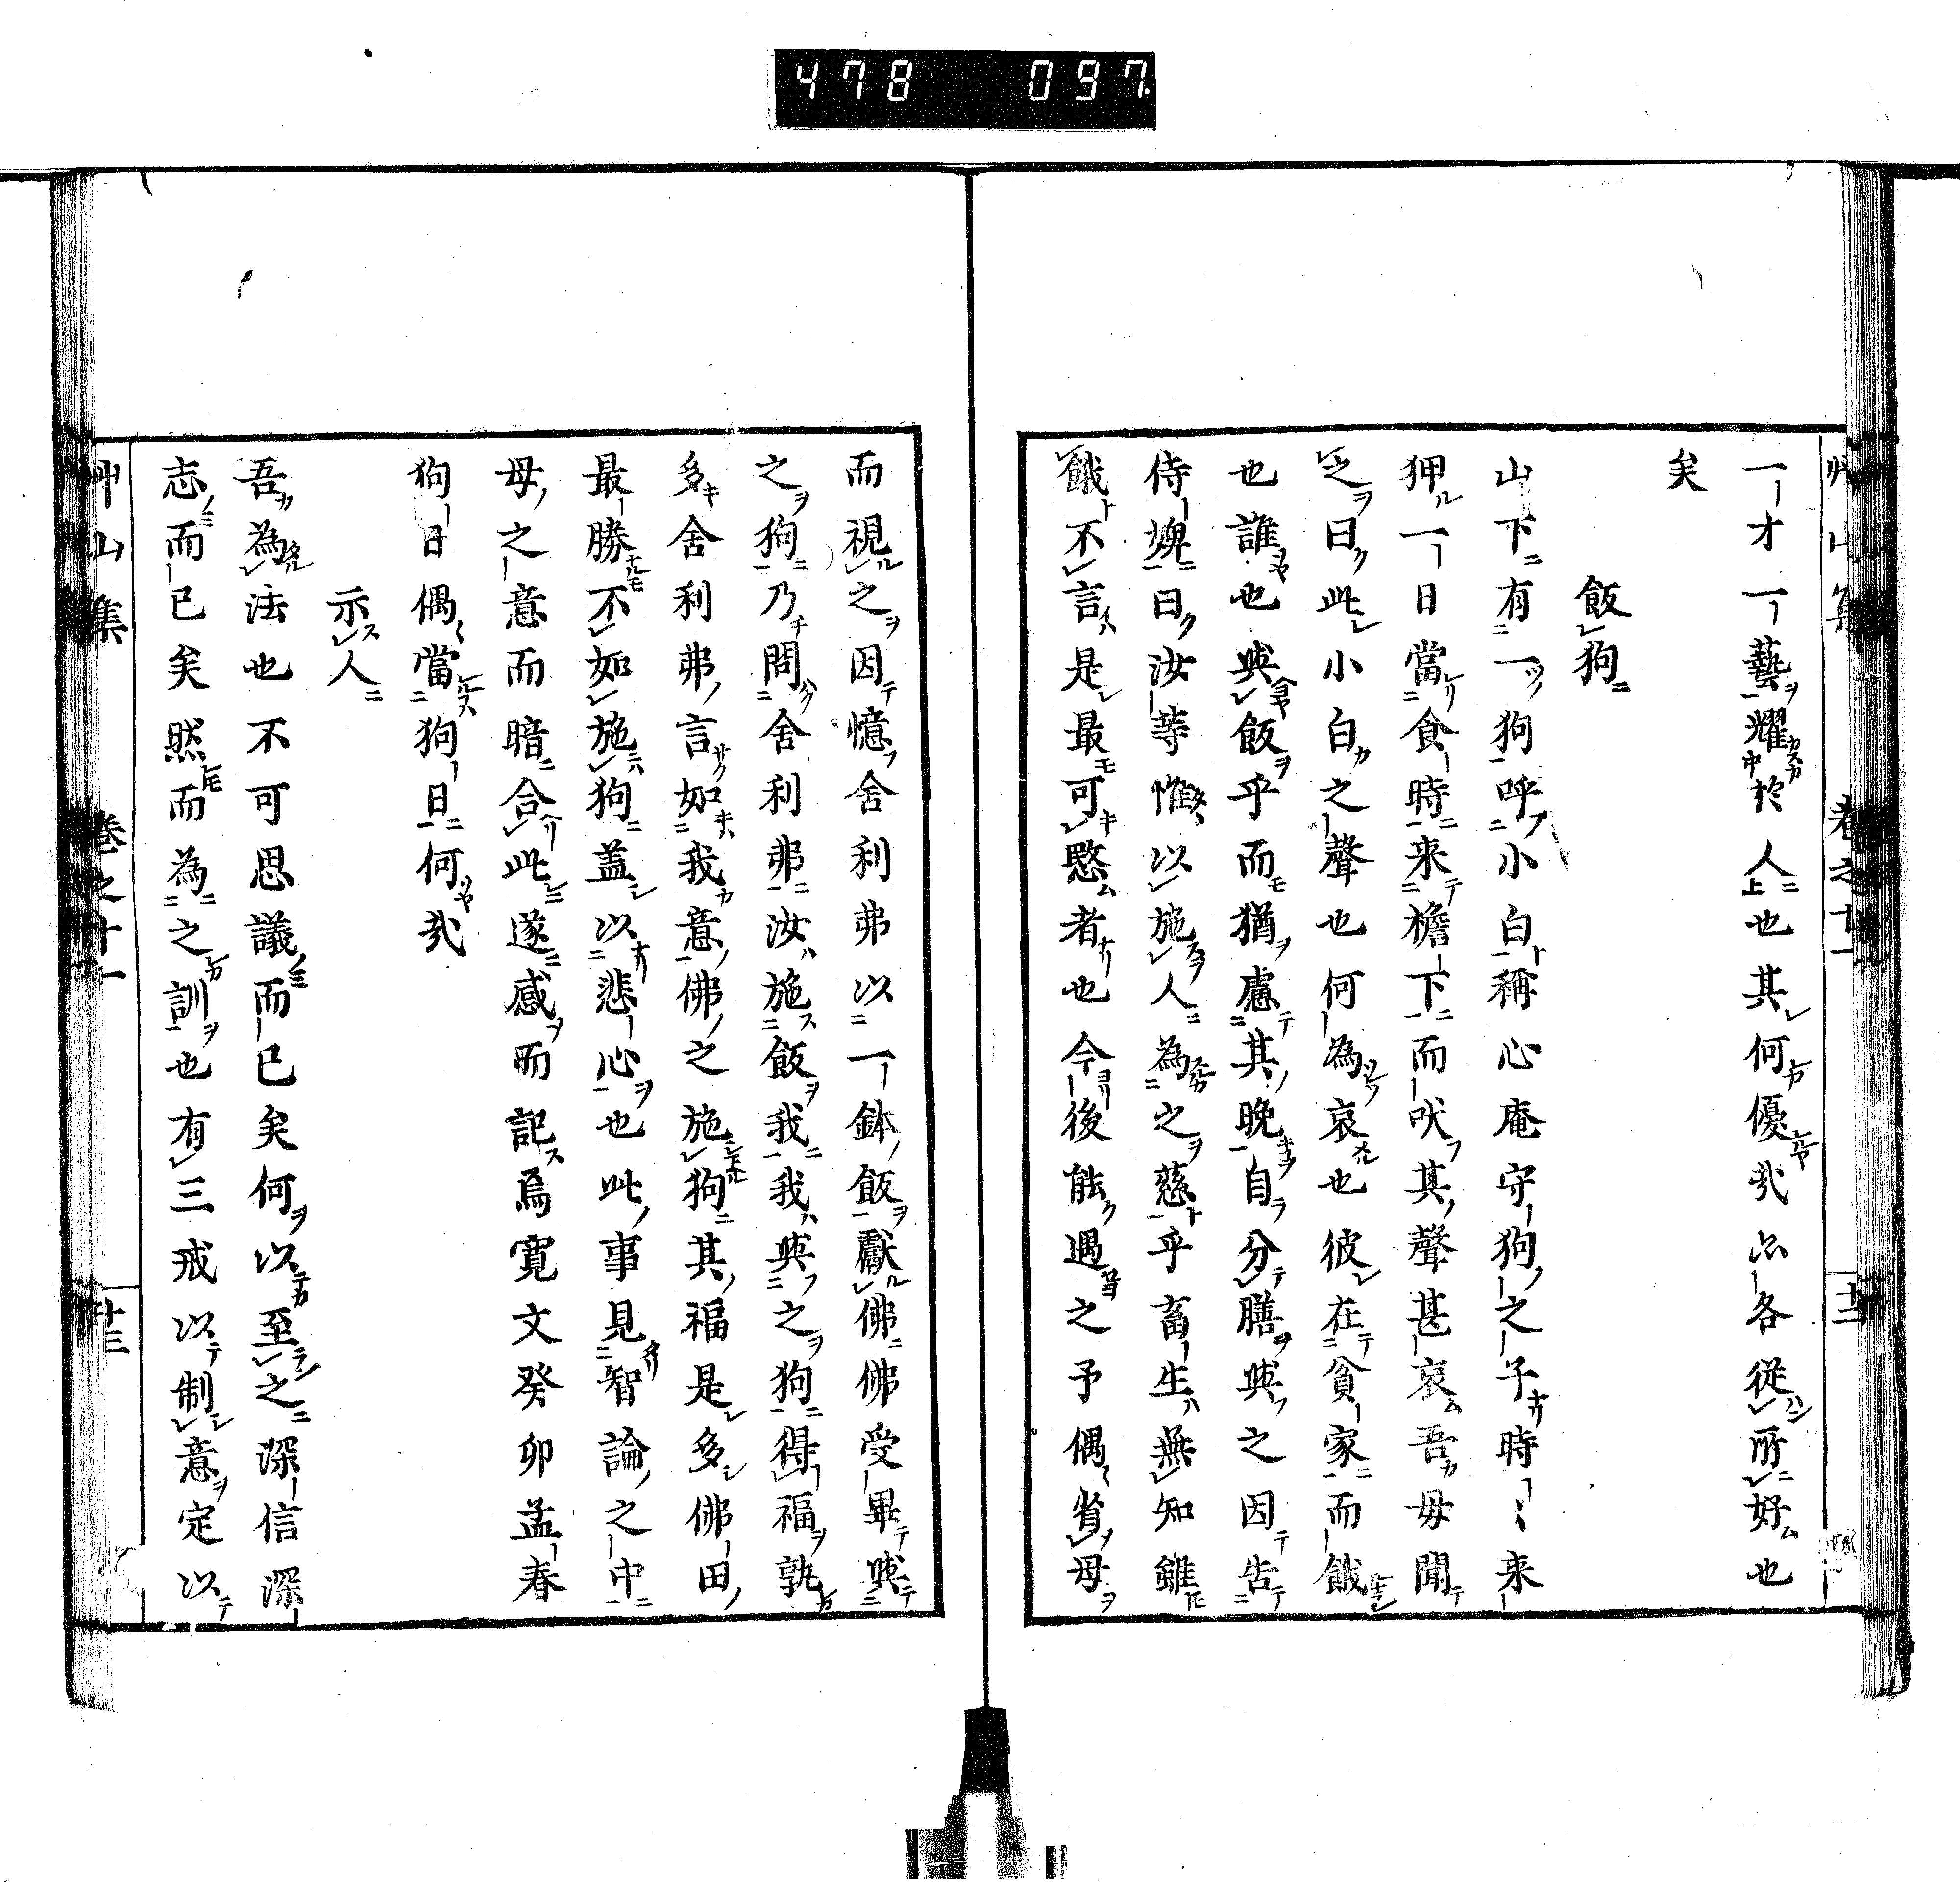 478 097.
一才一藝耀於人也其何優哉亦各從所好也
矣
飯狗
山下有一狗呼小白稱心庵守狗之子時〻来
狎一日當食時来檐下而吠其聲甚哀吾母聞
之曰此小白之聲也何為哀也彼在貧家而餓
也誰也與飯乎而猶慮其晚自分膳與之因告
侍婢曰汝等惟以施人為之慈乎畜生無知雖
餓不言是最可愍者也今後能遇之予偶省母
而視之因憶舍利弗以一鉢飯獻佛佛受畢與
之狗乃問舍利弗汝施飯我我與之狗得福孰
多舍利弗言如我意佛之施狗其福是多佛田
最勝不如施狗蓋以悲心也此事見智論之中
母之意而暗合此遂感而記焉寛文癸卯孟春
狗日偶當狗日何哉
示人
吾為法也不可思議而已矣何以至之深信深
志而已矣然而為之訓也有三戒以制意定以
艸山集 卷之十一 廿三